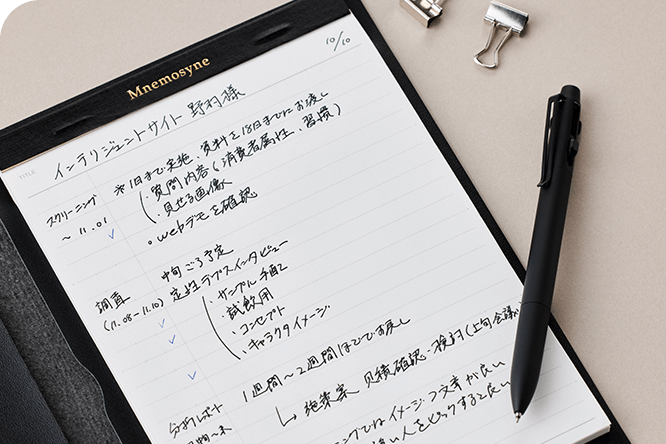 Mnemosyne
10/10
TITLE
インテリジェントサイト 野村様
スクリーニング
〜11.01
※1日まで実施、資料を18日までにお渡し
・質問内容(消費者属性、習慣)
・見せる画像
。webデモを確認
調査
(11.08-11.10)
中旬ごろ予定
定性デプスインタビュー
・サンプル手配
・試飲用
・コンセプト
・キャラクタイメージ
分析レポート
1週間〜2週間ほどでお戻し
↳ 施策案 見積確認・検討(上旬会議
イメージ
人をピックすると良い